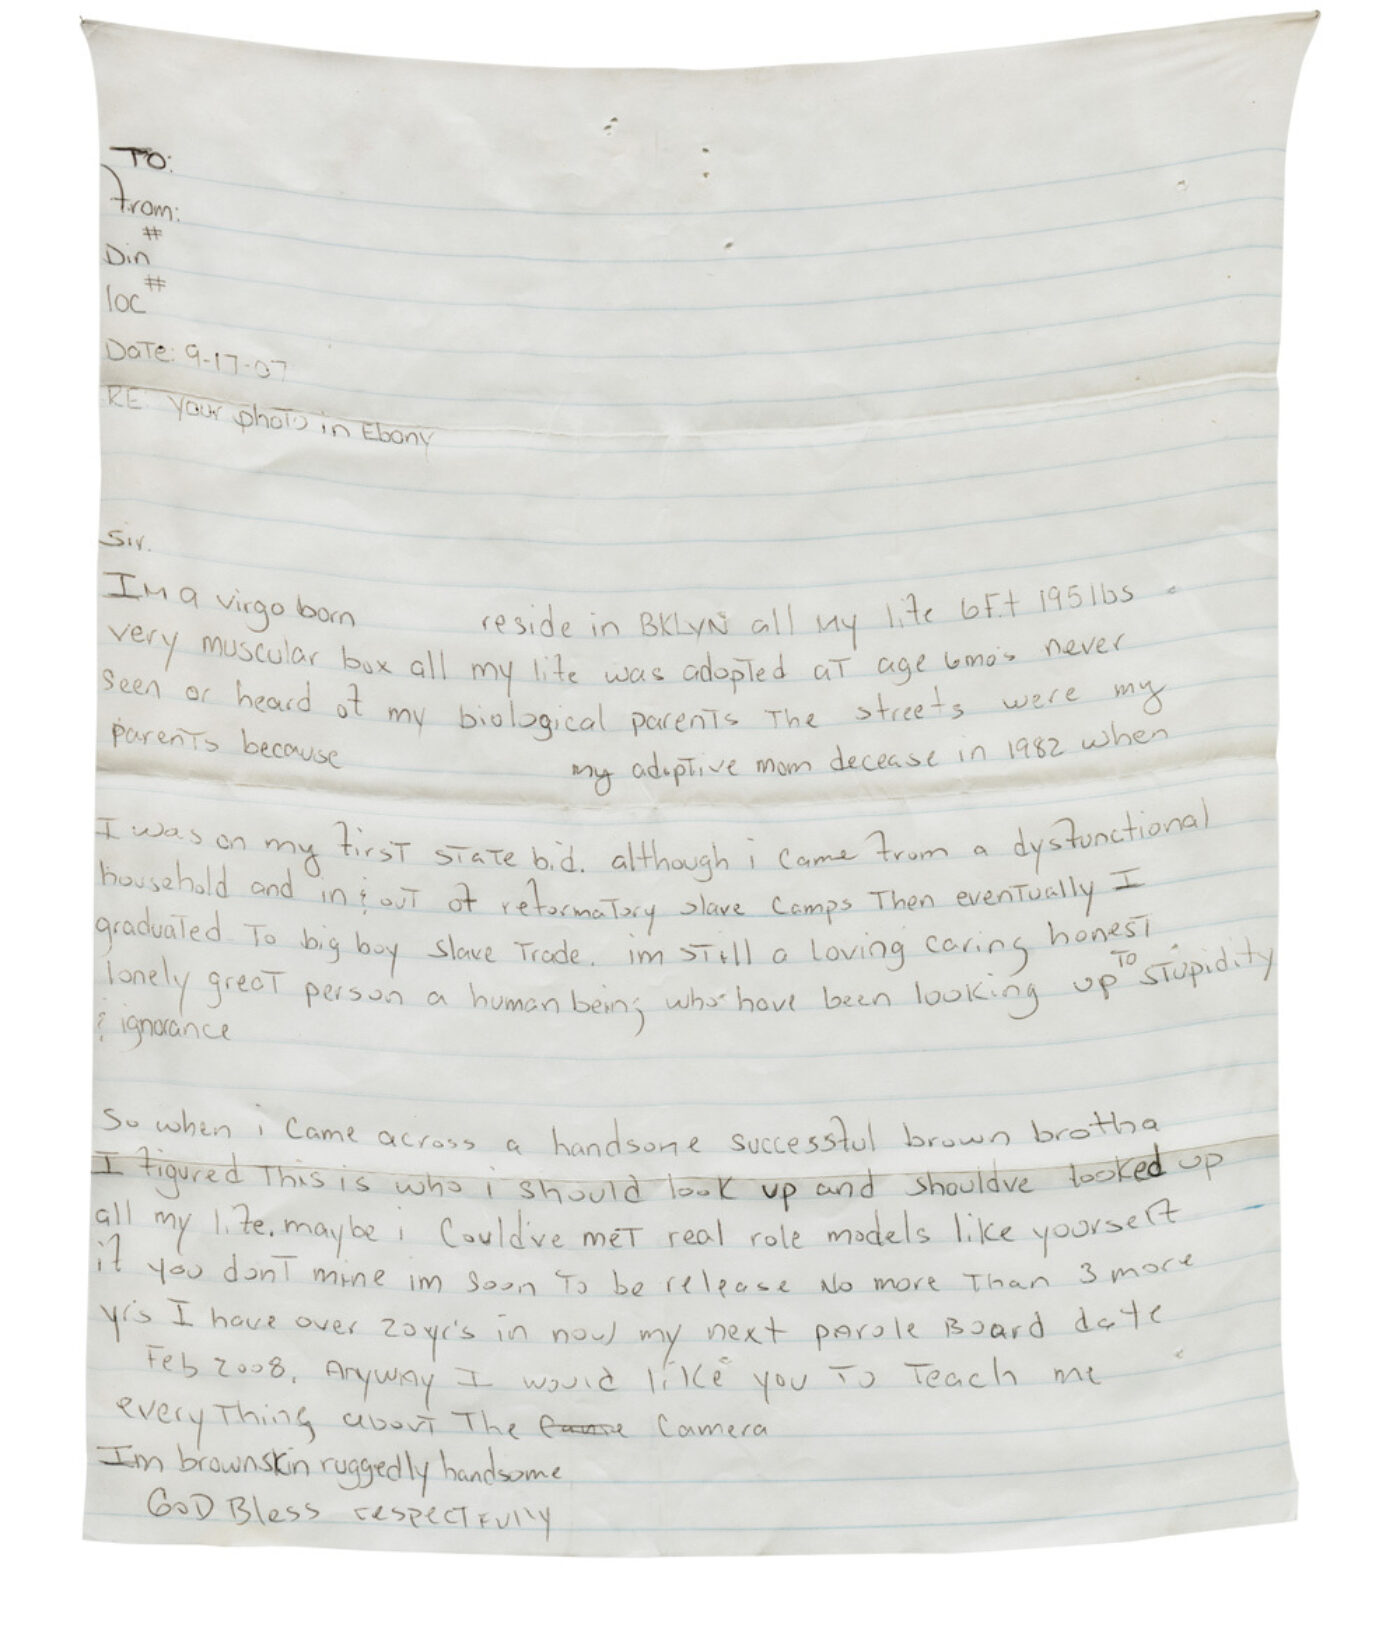 TO:
From:
Din #
loc #
Date: 9-17-07
RE: your photo in Ebony
Sir.
Im a virgo born reside in BKLYN all my life 6Ft 195lbs
very muscular box all my life was adopted at age 6mo's never
seen or heard of my biological parents The streets were my
parents because my adoptive mom decease in 1982 when
I was on my first state bid. although i came from a dysfunctional
household and in & out of reformatory slave camps Then eventually I
graduated To big boy slave Trade. im still a loving caring honest
lonely great person a human being who have been looking up TO stupidity
& ignorance
So when i came across a handsome successful brown brotha
I figured This is who i should look up and shouldve looked up
all my life. maybe i Could've met real role models like yourself
if you dont mine im soon To be release No more Than 3 more
yrs I have over 20yr's in now my next parole Board date
Feb 2008. Anyway I would like you To Teach me
everyThing about The Camera
Im brownskin ruggedly handsome
GOD Bless respectfully